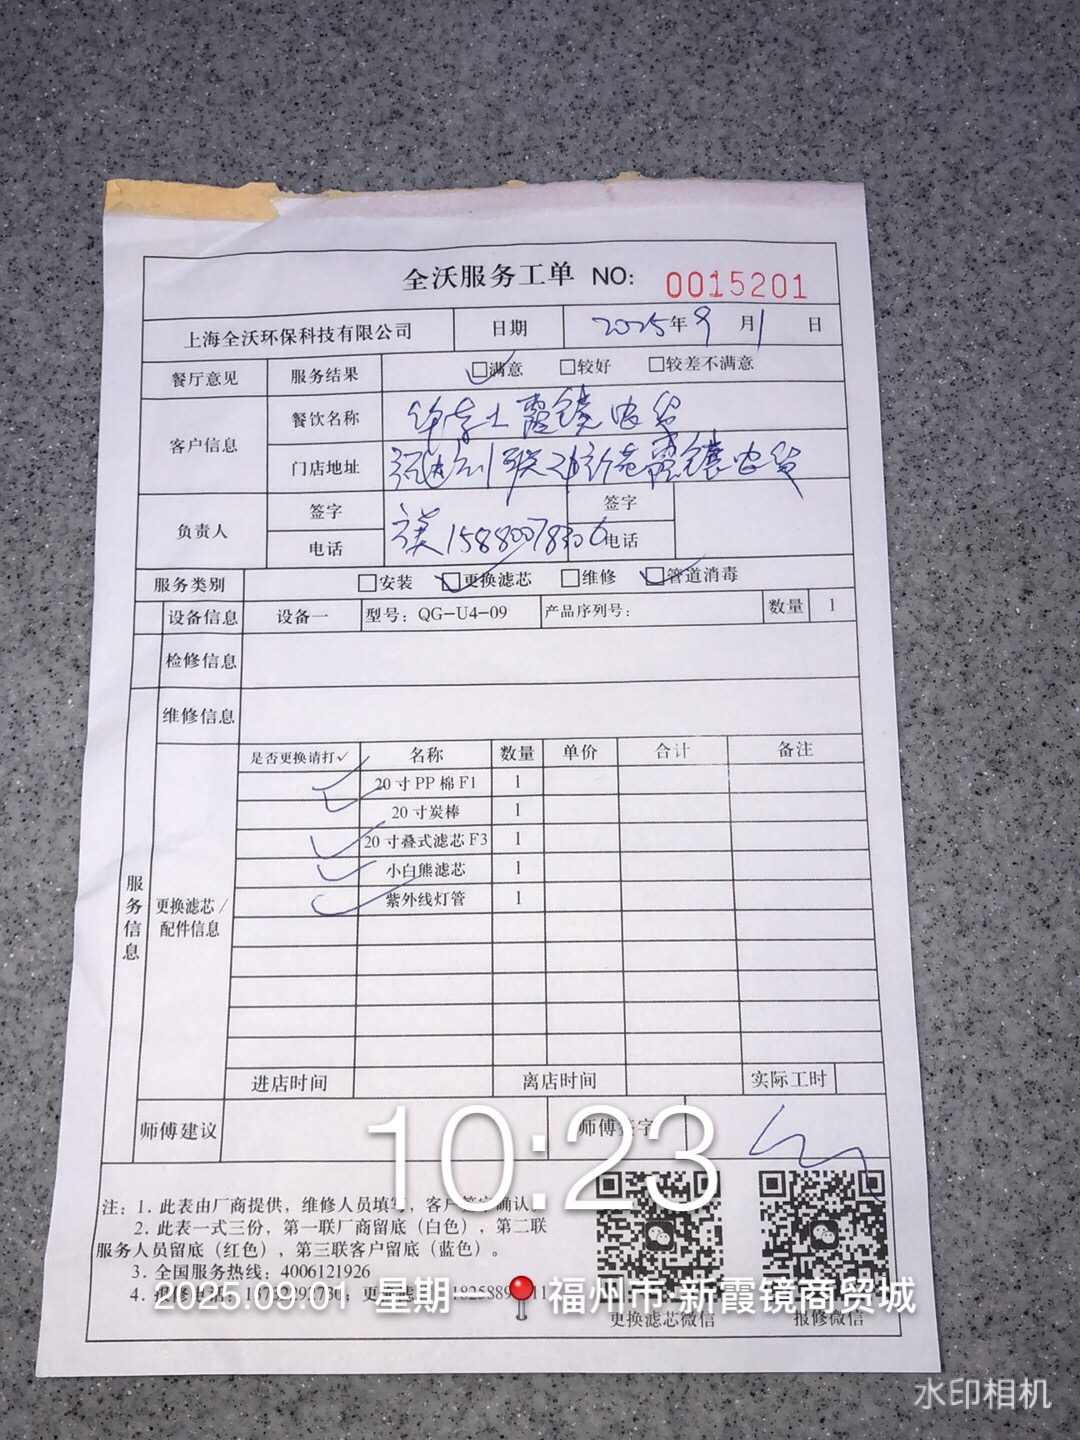 全沃服务工单 NO: 0015201
上海全沃环保科技有限公司 日期 2025年9月1日
餐厅意见 服务结果 满意 较好 较差不满意
客户信息 餐饮名称 华莱士霞镜店
门店地址
负责人 签字 签字
电话 15880078306 电话
服务类别 安装 更换滤芯 维修 管道消毒
设备信息 设备一 型号: QG-U4-09 产品序列号: 数量 1
检修信息
维修信息
服务信息
更换滤芯/配件信息
是否更换请打✓ 名称 数量 单价 合计 备注
✓ 20寸PP棉F1 1
20寸炭棒 1
✓ 20寸叠式滤芯F3 1
✓ 小白熊滤芯 1
✓ 紫外线灯管 1
进店时间 离店时间 实际工时
师傅建议 师傅签字
10:23
注: 1. 此表由厂商提供, 维修人员填写, 客户签字确认。
2. 此表一式三份, 第一联厂商留底(白色), 第二联
服务人员留底(红色), 第三联客户留底(蓝色)。
3. 全国服务热线: 4006121926
4. 报修电话
2025.09.01 星期一 福州市·新霞镜商贸城
更换滤芯微信 报修微信
水印相机